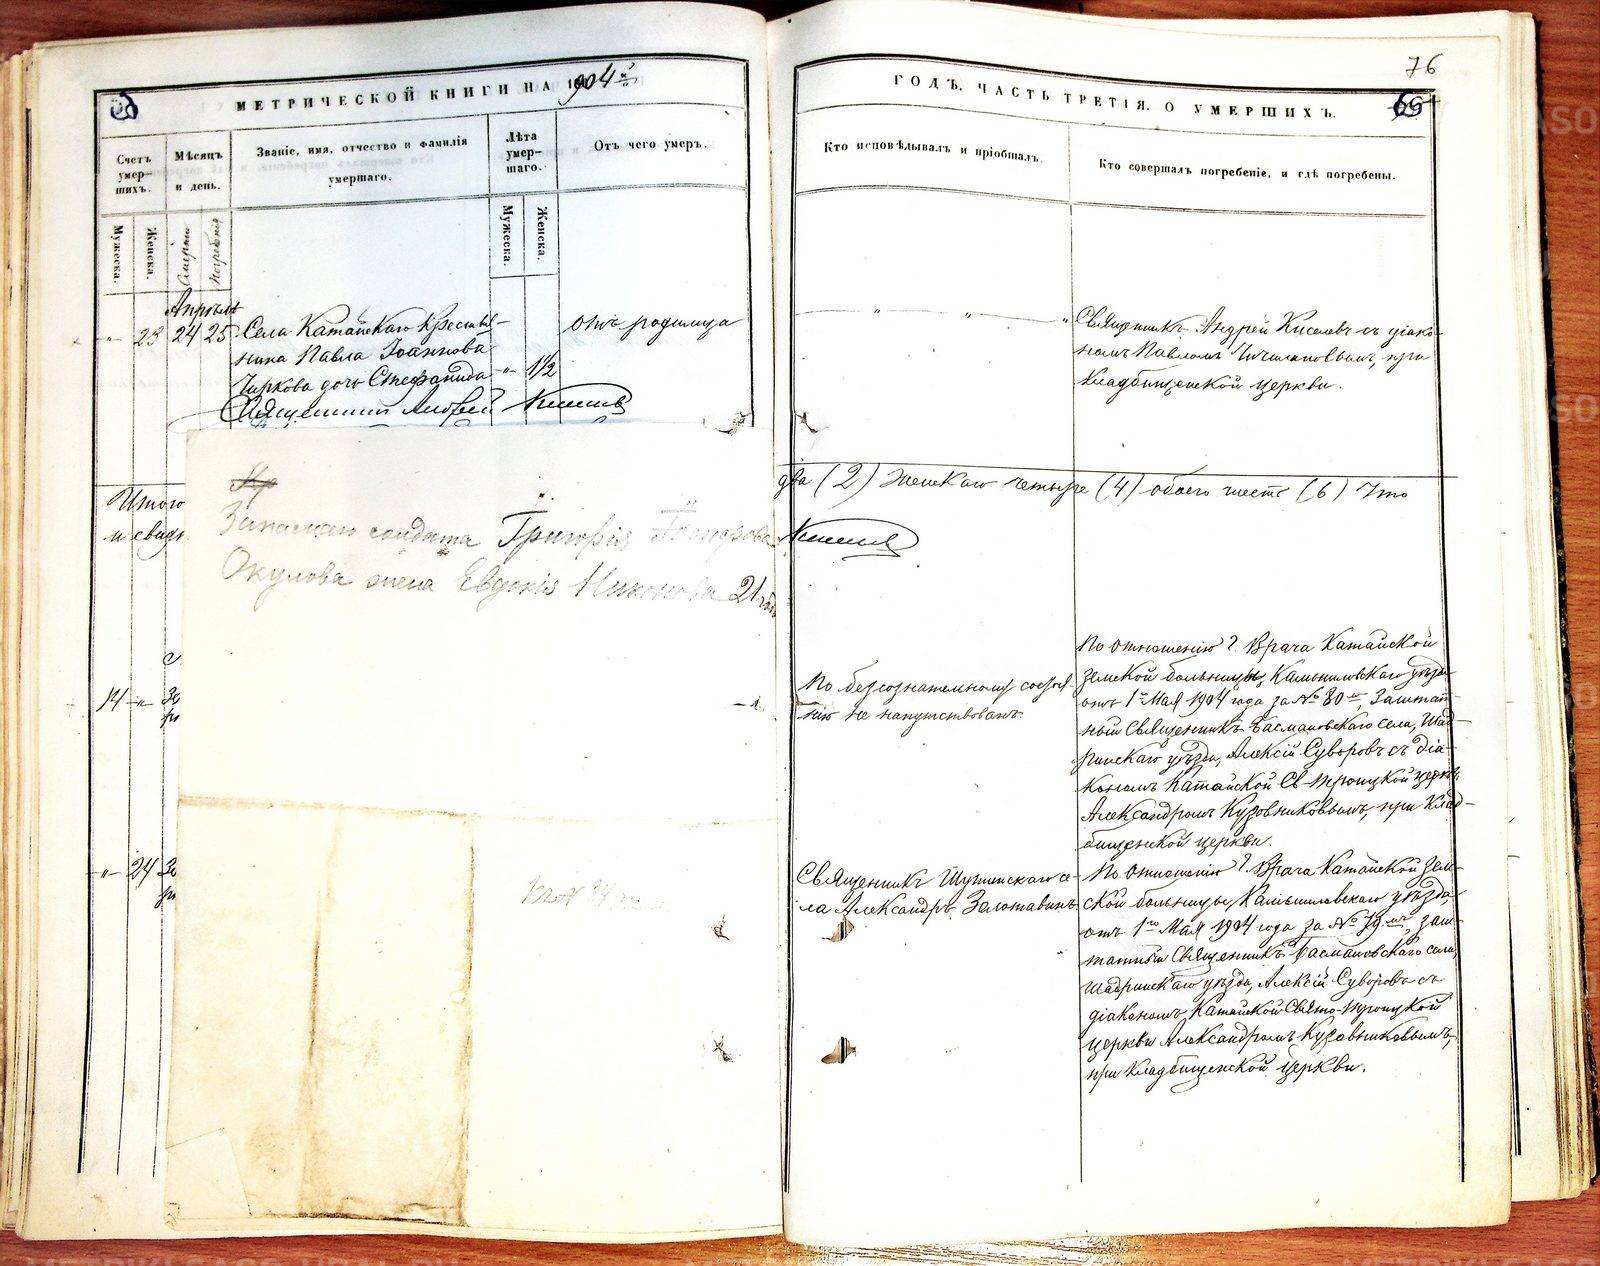 МЕТРИЧЕСКОЙ КНИГИ НА 1904й
Счетъ умер-шихъ.
Мѣсяцъ и день.
Званіе, имя, отчество и фамилія умершаго.
Лѣта умер-шаго.
Отъ чего умеръ.
Мужеска.
Женска.
Смерти
Погребенія
Мужеска.
Женска.
Апрѣля
-"- 23 24 25 Села Катайскаго Кресть- отъ родимца
нина Павла Іоаннова
Чиркова дочь Стефанида -"- 1/2
Священникъ Андрей Киселевъ
Итого
и свидѣ
Запаснаго солдата Григорія Ѳеодорова
Окулова жена Евдокія Никонова 21 года
14 -"- 30
-"- 24 30
76
ГОДЪ. ЧАСТЬ ТРЕТІЯ. О УМЕРШИХЪ.
69
Кто исповѣдывалъ и пріобщалъ.
Кто совершалъ погребеніе, и гдѣ погребены.
Священникъ Андрей Киселевъ съ діако-
номъ Павломъ при
кладбищенской церкви.
два (2) женскаго четыре (4) обоего шесть (6) Что
Киселевъ
По безсознательному состоя-
нію не напутствованъ.
По отношенію Г. Врача Катайской
земской больницы, Камышловскаго уѣзда
отъ 1го Мая 1904 года за № 80м, Заштат-
ный Священникъ Басмановскаго села, Шад-
ринскаго уѣзда, Алексій Суворовъ съ діа-
кономъ Катайской Св-Троицкой церкви
Александромъ Кузовниковымъ, при Клад-
бищенской церкви.
Священникъ Шутинскаго се-
ла Александръ Золотавинъ.
По отношенію Г. Врача Катайской Зем-
ской больницы Камышловскаго уѣзда,
отъ 1го Мая 1904 года за № 79мъ, заш-
татный Священникъ Басмановскаго села,
Шадринскаго уѣзда, Алексій Суворовъ съ
діакономъ Катайской Свято-Троицкой
церкви Александромъ Кузовниковымъ,
при кладбищенской церкви.